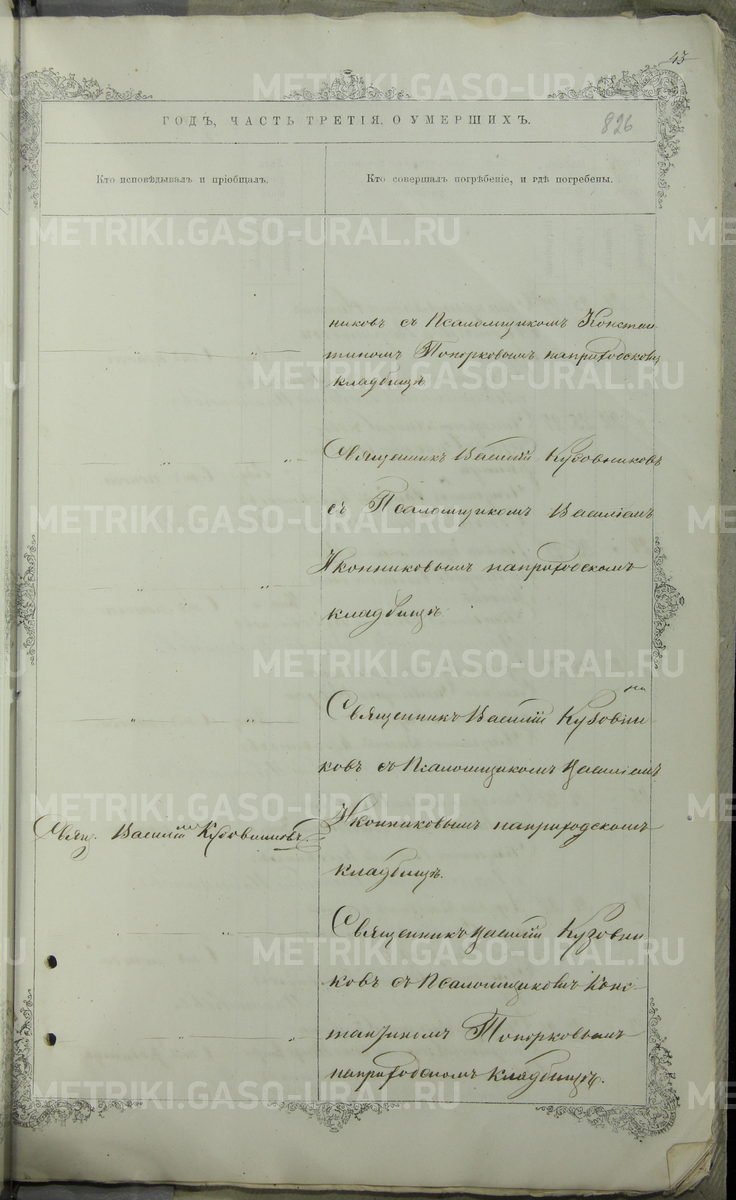 45
826
ГОДЪ, ЧАСТЬ ТРЕТІЯ, О УМЕРШИХЪ.
Кто исповѣдывалъ и пріобщалъ.
Кто совершалъ погрѣбеніе, и гдѣ погребены.
никовъ съ Псаломщикомъ Констан
тиномъ Топорковымъ на приходскомъ
кладбищѣ
Священникъ Василій Кузовниковъ
съ Псаломщикомъ Василіемъ
Иконниковымъ на приходскомъ
кладбищѣ
Священникъ Василій Кузовни
ковъ съ Псаломщикомъ Василіемъ
Свящ. Василій Кузовниковъ
Иконниковымъ на приходскомъ
кладбищѣ.
Священникъ Василій Кузовни
ковъ съ Псаломщикомъ Конс
тантиномъ Топорковымъ
на приходскомъ кладбищѣ.
METRIKI.GASO-URAL.RU